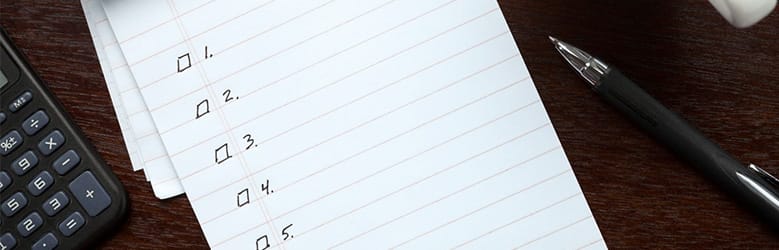 □ 1.
□ 2.
□ 3.
□ 4.
□ 5.
MS
÷
%±
×
9
−
6
5
+
3
2
=